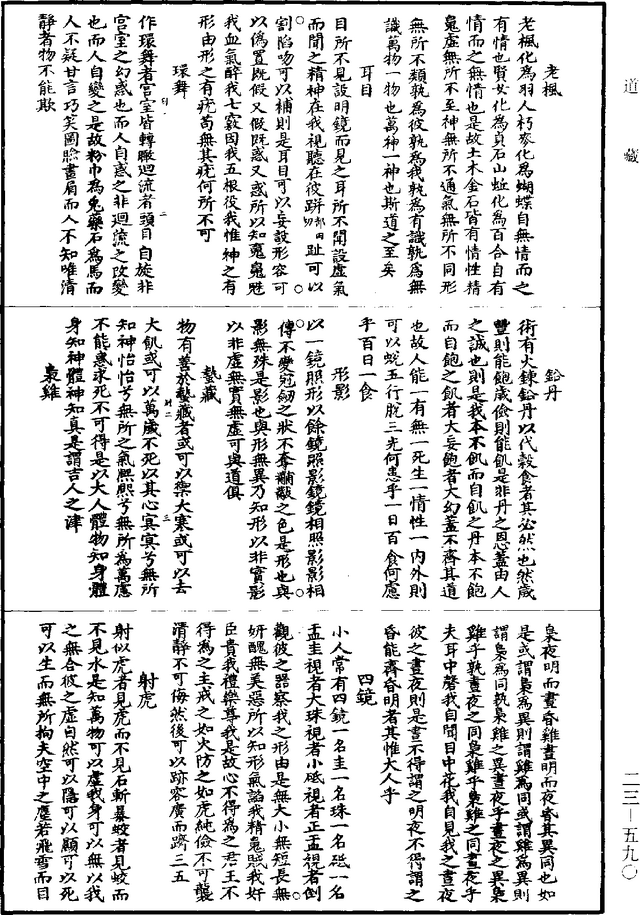 道藏
老楓
老楓化為羽人朽麥化為蝴蝶自無情而之
有情也賢女化為貞石山蚯化為百合自有
情而之無情也是故土木金石皆有情性精
魄虛無所不至神無所不通氣無所不同形
無所不類孰為彼孰為我孰為有識孰為無
識萬物一物也萬神一神也斯道之至矣
耳目
目所不見設明鏡而見之耳所不聞設虛氣
而聞之精神在我視聽在彼跰部田切趾可以
割陷吻可以補則是耳目可以妄設形容可
以偽置既假又假既惑又惑所以知魂魄魅
我血氣醉我七竅囚我五根役我惟神之有
形由形之有疣苟無其疣何所不可
環舞
作環舞者宮室皆轉瞰迴流者頭目自旋非
宮室之幻惑也而人自惑之非迴流之改變
也而人自變之是故粉巾為兔藥石為馬而
人不疑甘言巧笑圖臉畫眉而人不知唯清
靜者物不能欺
鉛丹
術有火鍊鉛丹以代穀食者其必然也然歲
豐則能飽歲儉則能飢是非丹之恩蓋由人
之誠也則是我本不飢而自飢之丹本不飽
而自飽之飢者大妄飽者大幻蓋不齊其道
也故人能一有無一死生一情性一內外則
可以蛻五行脫三光何患乎一日百食何慮
乎百日一食
形影
以一鏡照形以餘鏡照影鏡鏡相照影影相
傳不變冠劍之狀不奪黼黻之色是形也與
影無殊是影也與形無異乃知形以非實影
以非虛無實無虛可與道俱
蟄藏
物有善於蟄藏者或可以禦大寒或可以去
大飢或可以萬歲不死以其心冥冥兮無所
知神怡怡兮無所之氣熙熙兮無所為萬慮
不能惑求死不可得是以大人體物知身體
身知神體神知真是謂吉人之津
梟雞
梟夜明而晝昏雞晝明而夜昏其異同也如
是或謂梟為異則謂雞為同或謂雞為異則
謂梟為同孰梟雞之異晝夜乎晝夜之異梟
雞乎孰晝夜之同梟雞乎梟雞之同晝夜乎
夫耳中磬我自聞目中花我自見我之晝夜
彼之晝夜則是晝不得謂之明夜不得謂之
昏能齊昏明者其惟大人乎
四鏡
小人常有四鏡一名圭一名珠一名砥一名
盂圭視者大珠視者小砥視者正盂視者倒
觀彼之器察我之形由是無大小無短長無
妍醜無美惡所以知形氣諂我精魄賊我奸
臣貴我禮樂尊我是故心不得為之君王不
得為之主戒之如火防之如虎純儉不可襲
清靜不可侮然後可以跡容廣而躋三五
射虎
射似虎者見虎而不見石斬暴蛟者見蛟而
不見水是知萬物可以虛我身可以無以我
之無合彼之虛自然可以隱可以顯可以死
可以生而無所拘夫空中之塵若飛雪而目
二三—五九〇